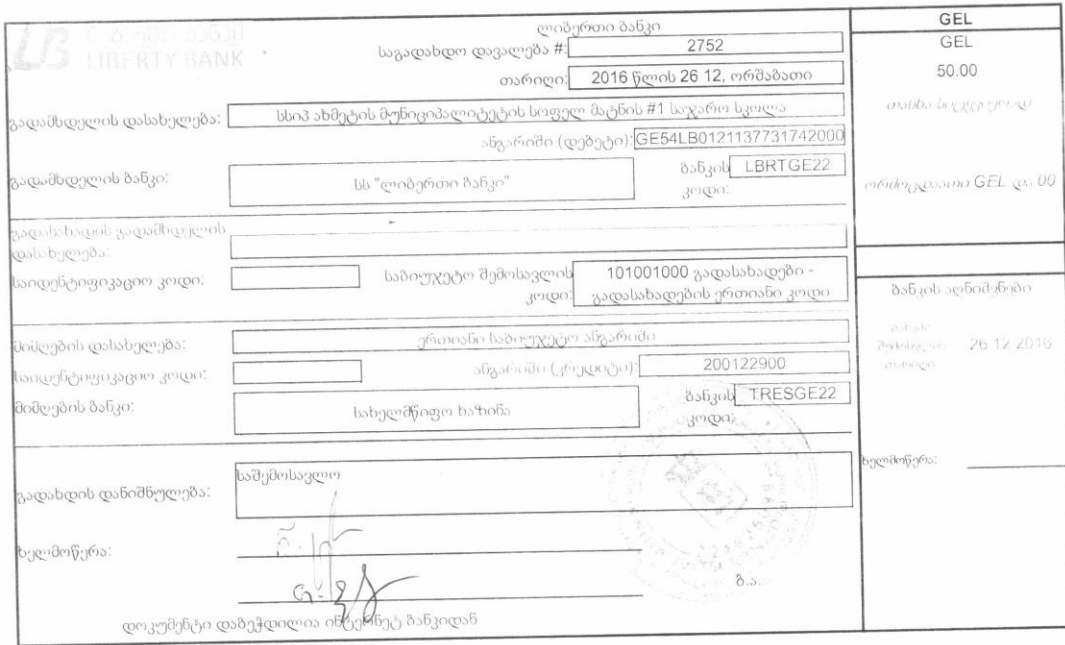 ლიბერთი ბანკი
LIBERTY BANK
ლიბერთი ბანკი
საგადახდო დავალება #: 2752
თარიღი: 2016 წლის 26 12, ორშაბათი
გადამხდელის დასახელება: სსიპ ახმეტის მუნიციპალიტეტის სოფელ მატნის #1 საჯარო სკოლა
ანგარიში (დებეტი): GE54LB0121137731742000
გადამხდელის ბანკი: სს "ლიბერთი ბანკი" ბანკის კოდი: LBRTGE22
გადასახადის გადამხდელის დასახელება:
საიდენტიფიკაციო კოდი: საბიუჯეტო შემოსავლის კოდი: 101001000 გადასახადები - გადასახადების ერთიანი კოდი
მიმღების დასახელება: ერთიანი საბიუჯეტო ანგარიში
საიდენტიფიკაციო კოდი: ანგარიში (კრედიტი): 200122900
მიმღების ბანკი: სახელმწიფო ხაზინა ბანკის კოდი: TRESGE22
გადახდის დანიშნულება: საშემოსავლო
ხელმოწერა:
ბ.ა.
დოკუმენტი დაბეჭდილია ინტერნეტ ბანკიდან
GEL
GEL
50.00
თანხა სიტყვიერად
ორმოცდაათი GEL და 00
ბანკის აღნიშვნები
ბანკში
შემოსვლის 26 12 2016
თარიღი
ხელმოწერა: